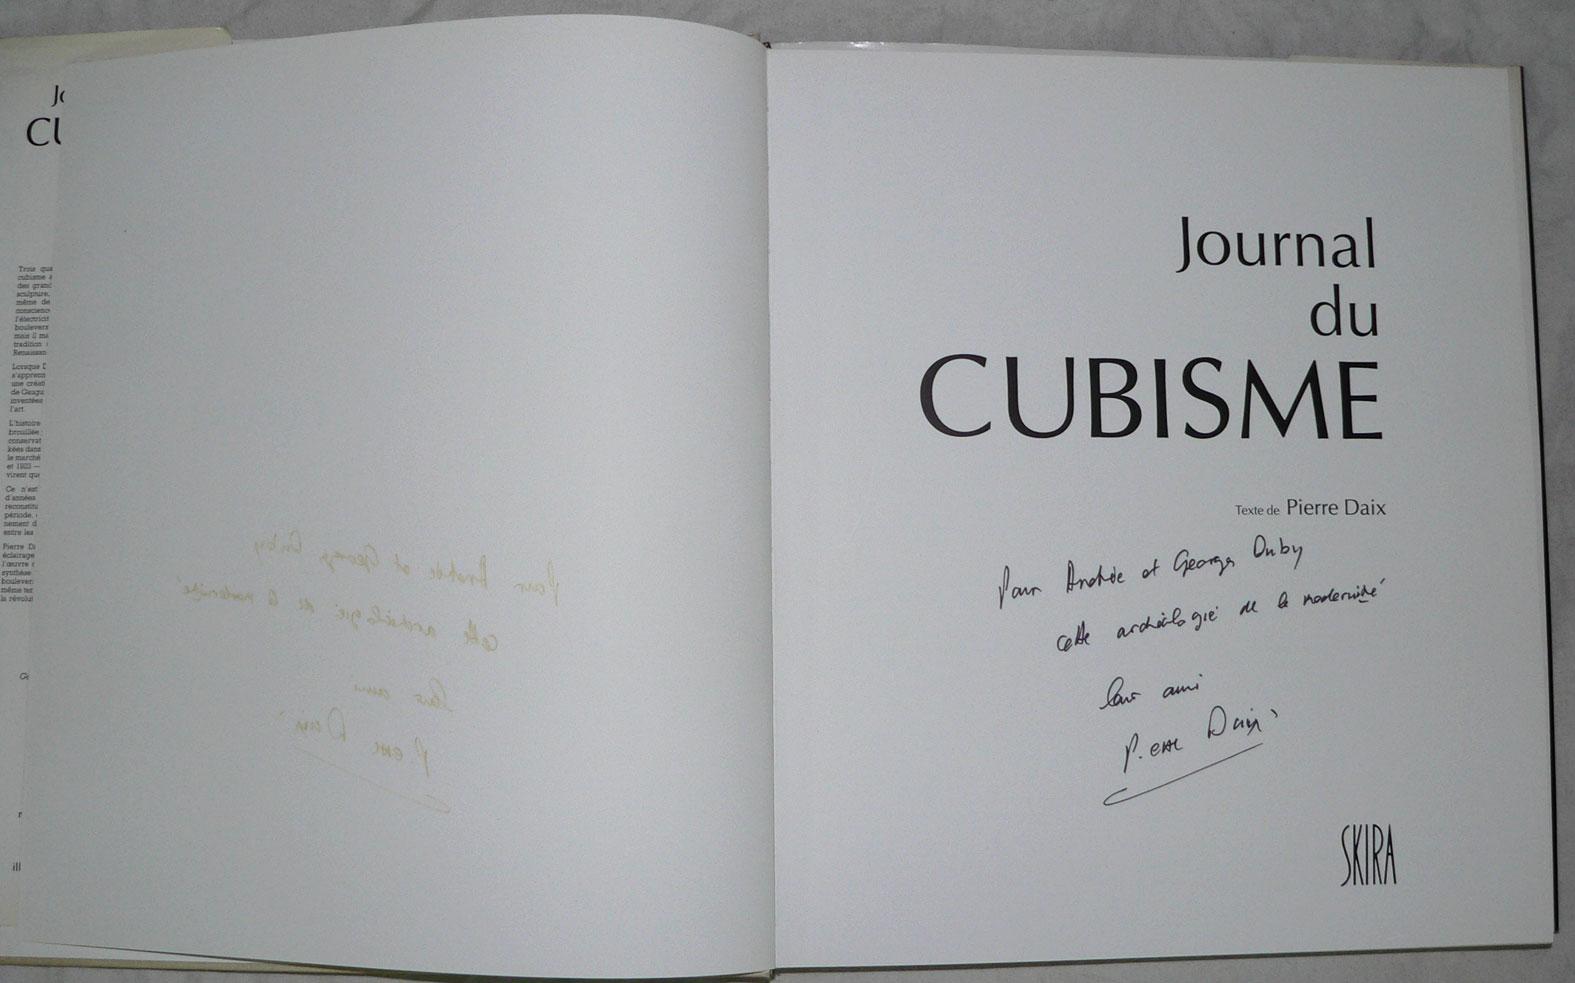 Jo
CU
Trois qua
cubisme a
des grand
sculpture,
même de
conscienc
l'électricit
boulevers
mais il ma
tradition
Renaissan
Lorsque D
s'apprenn
une créati
de Gaugu
inventées
l'art.
L'histoire
brouillée
conservat
kées dans
le marché
et 1923 —
virent que
Ce n'est
d'années
reconstitu
période,
nement d
entre les
Pierre Da
éclairage
l'œuvre
synthèse
boulever
même ter
la révolut
ill
Journal
du
CUBISME
Texte de Pierre Daix
Pour Andrée et Georges Duby
cette archéologie de la modernité
leur ami
Pierre Daix
SKIRA